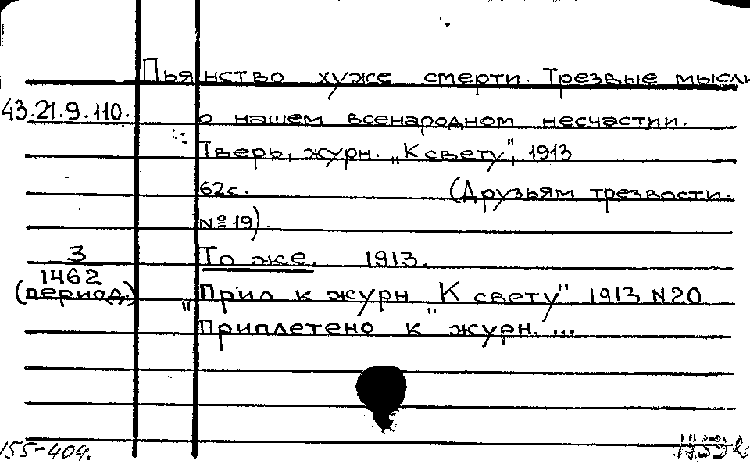 Пьянство хуже смерти. Трезвые мысли
43.21.9.110. о нашем всенародном несчастии.
Тверь, журн. „К свету", 1913
62с. (Друзьям трезвости.
№19).
То же. 1913.
3
1462
(период.)
"Прил к журн "К свету" 1913 N20
Приплетено к журн. ...
155-409.